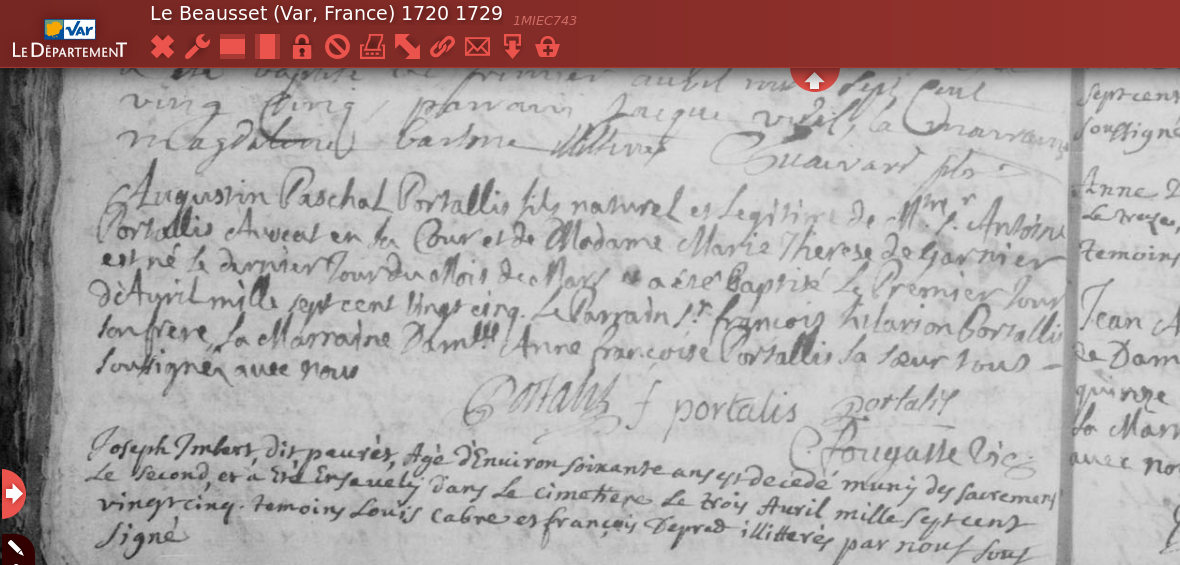 Le Beausset (Var, France) 1720 1729
1MIEC743
Var
LE DÉPARTEMENT
a été baptisé le premier avril sept cent
vingt cinq, parrain Jacque vidil, la marraine
magdelene barthme illitires Guaivard ptre
Augustin Paschal Portallis fils naturel et Legitime de Mre. Sr. Antoine
Portallis Avocat en la Cour et de Madame Marie Therese de Garnier
est né le dernier Jour du Mois de Mars a été Baptisé Le Premier Jour
d'Avril mille sept cent vingt cinq. Le Parrain Sr. françois hilarion Portallis
son frere, La Marraine Damlle Anne françoise Portallis sa sœur tous
soussignés avec nous
Portalis f portalis portalis
Fougasse Vic:
Joseph Imbert, dit paurés, Agé d'Environ soixante ans est decedé muni des sacremens
Le second, et à Eté Ensevely dans Le cimetiere Le trois Avril mille sept cent
vingt cinq. temoins Louis Cabre et françois Depred illitterés par nous sous
signé
septcens
soussigne
Anne
Le treze,
temoins
Jean
de Dam
quinze
La Marr
avec no